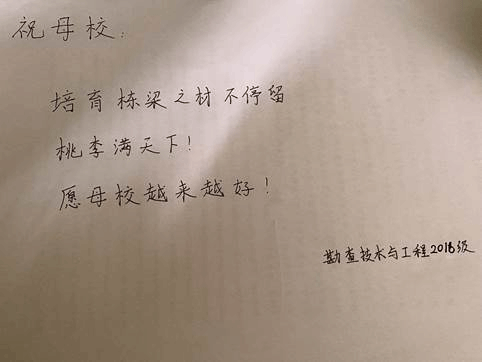 祝母校：
培育栋梁之材不停留
桃李满天下！
愿母校越来越好！
勘查技术与工程2018级